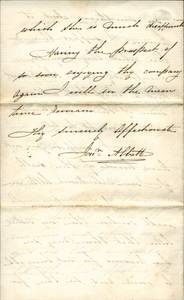 which this is much
Having the prospect of
so soon enjoying thy company
again I will in the mean
time remain
Thy sincerely affectionate
Jon.ⁿ Abbott